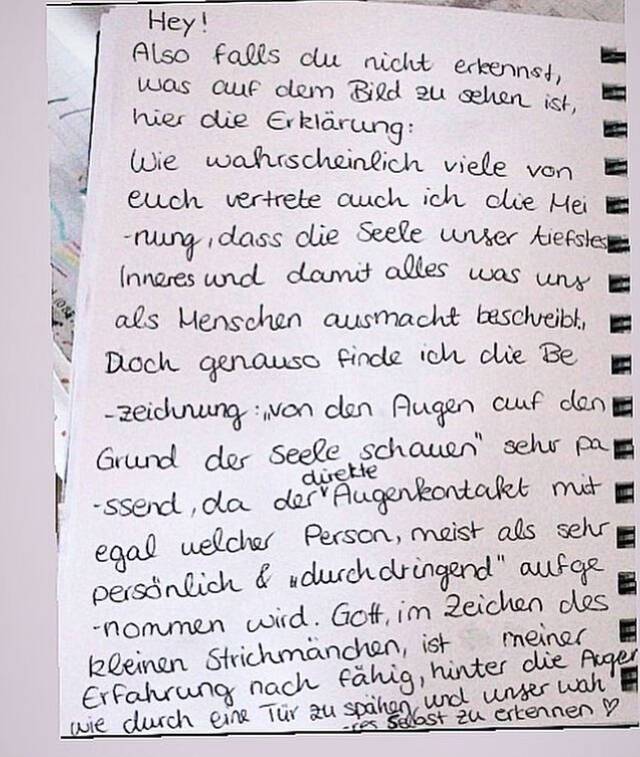 Hey!
Also falls du nicht erkennst,
was auf dem Bild zu sehen ist,
hier die Erklärung:
Wie wahrscheinlich viele von
euch vertrete auch ich die Mei
-nung, dass die Seele unser tiefstes
Inneres und damit alles was uns
als Menschen ausmacht beschreibt.
Doch genauso finde ich die Be
-zeichnung: „von den Augen auf den
Grund der Seele schauen" sehr pa
direkte
-ssend, da der Augenkontakt mit
egal welcher Person, meist als sehr
persönlich & „durchdringend" aufge
-nommen wird. Gott, im Zeichen des
kleinen Strichmänchen, ist meiner
Erfahrung nach fähig, hinter die Augen
wie durch eine Tür zu spähen und unser wah
-res Selbst zu erkennen ♡